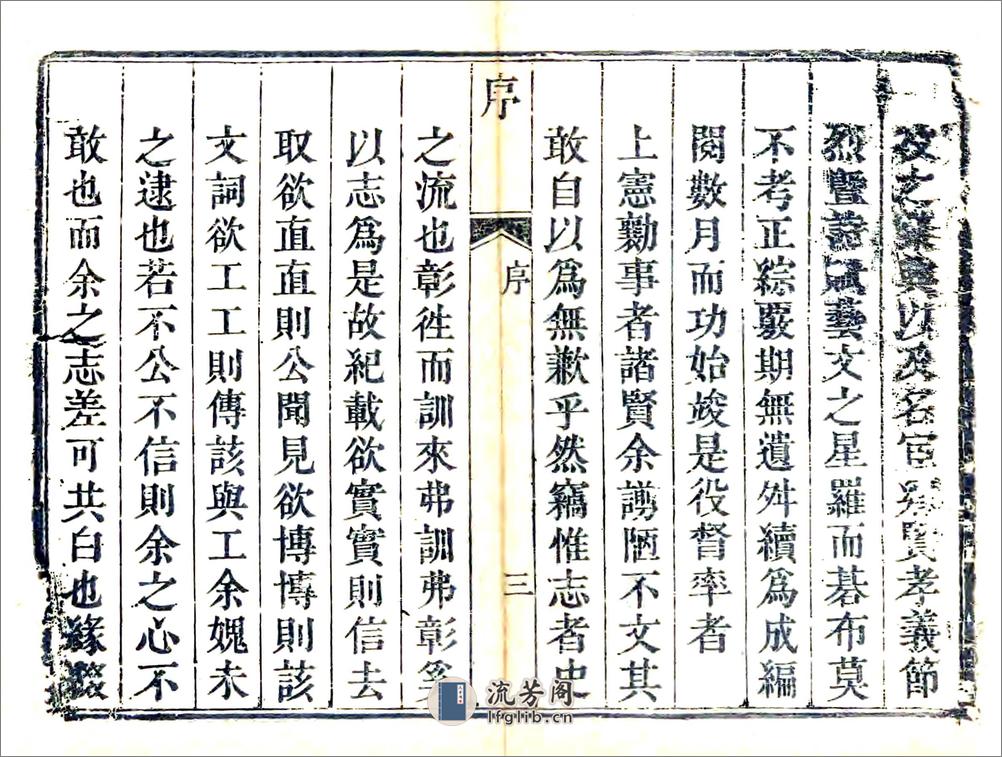 及之彙與以及名宦鄉賢孝義節
烈暨詩賦藝文之星羅而碁布莫
不考正綜覈期無遺舛續為成編
閱數月而功始竣是役督率者
上憲勷事者諸賢余譾陋不文其
敢自以為無歉乎然竊惟志者史
序
序
三
之流也彰徃而訓來弗訓弗彰奚
以志為是故紀載欲實實則信去
取欲直直則公聞見欲博博則該
文詞欲工工則傳該與工余媿未
之逮也若不公不信則余之心不
敢也而余之志差可共白也緣綴
流芳阁
lfglib.cn